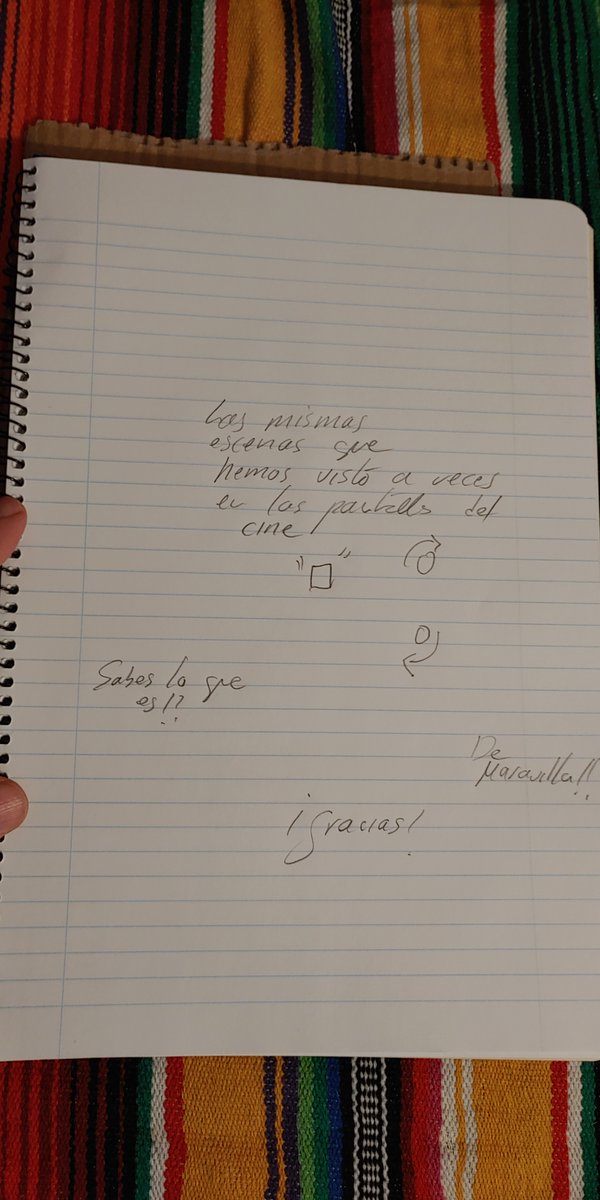 Las mismas
escenas que
hemos visto a veces
en las pantallas del
cine
Sabes lo que
es!?
De
Maravilla!!
¡Gracias!